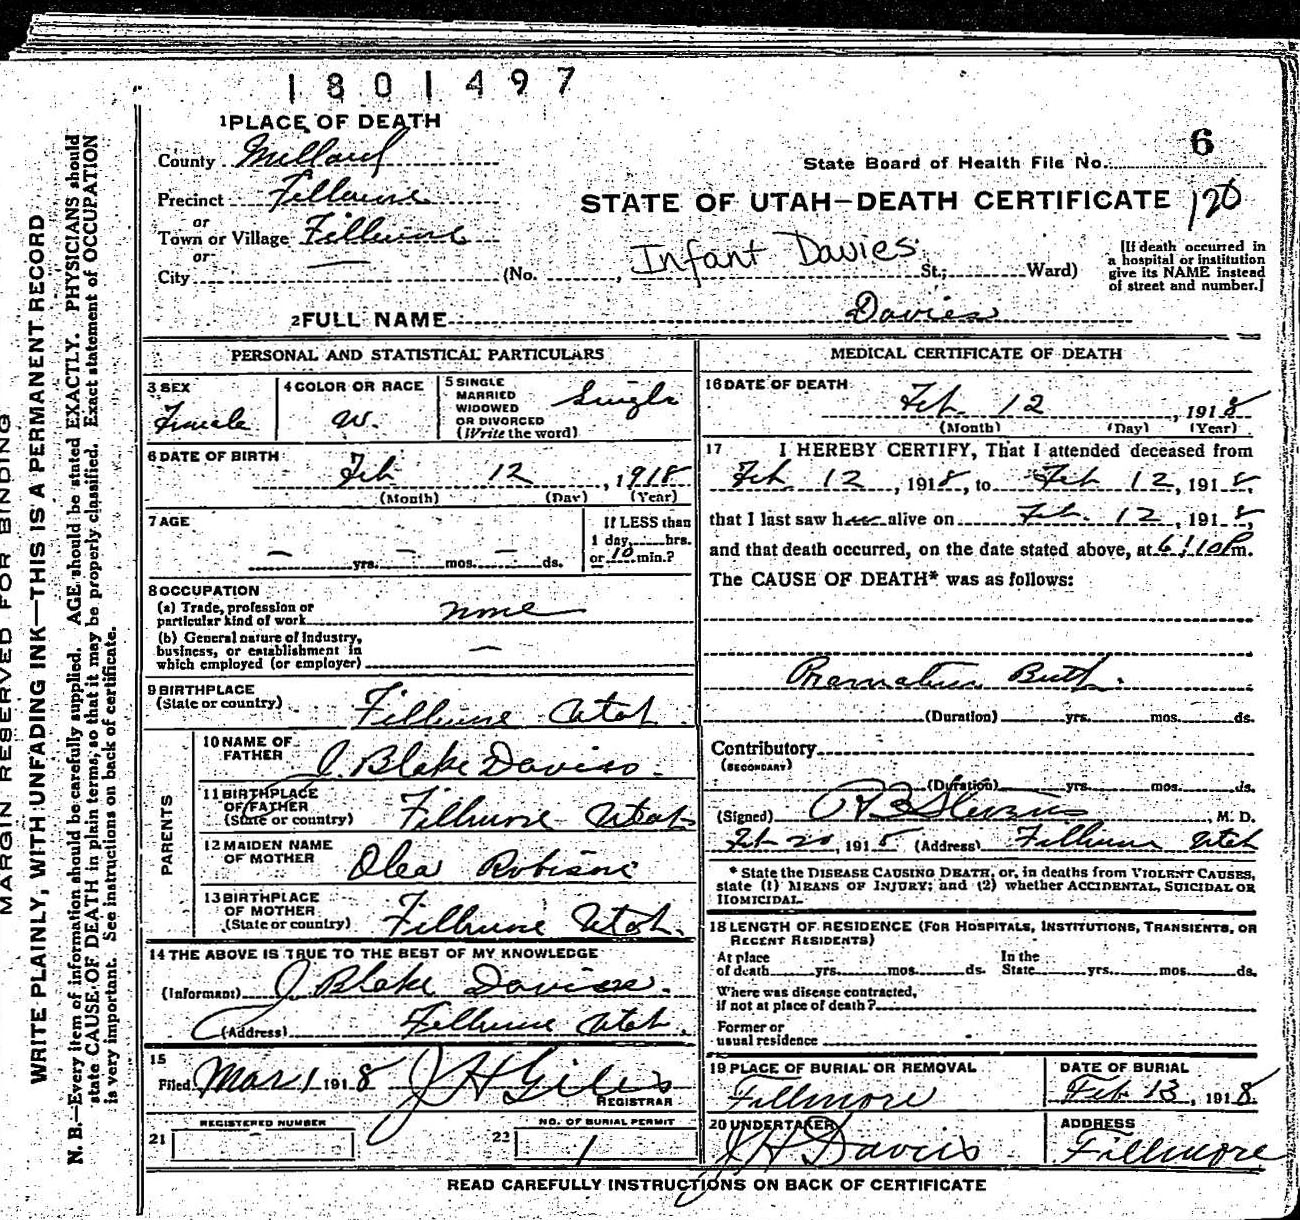 1801497
1 PLACE OF DEATH
County Millard
State Board of Health File No. 6
Precinct Fillmore
STATE OF UTAH—DEATH CERTIFICATE 120
or
Town or Village Fillmore
or
City — (No. , Infant Davies St.; Ward)
[If death occurred in
a hospital or institution
give its NAME instead
of street and number.]
2 FULL NAME Davies
PERSONAL AND STATISTICAL PARTICULARS
3 SEX
Female
4 COLOR OR RACE
W.
5 SINGLE
MARRIED
WIDOWED
OR DIVORCED
(Write the word)
Single
6 DATE OF BIRTH
Feb 12, 1918
(Month) (Day) (Year)
7 AGE
— yrs. — mos. — ds.
If LESS than
1 day, hrs.
or 10 min.?
8 OCCUPATION
(a) Trade, profession or
particular kind of work none
(b) General nature of Industry,
business, or establishment in
which employed (or employer) —
9 BIRTHPLACE
(State or country) Fillmore Utah
PARENTS
10 NAME OF
FATHER J. Blake Davies.
11 BIRTHPLACE
OF FATHER
(State or country) Fillmore Utah
12 MAIDEN NAME
OF MOTHER Olea Robison
13 BIRTHPLACE
OF MOTHER
(State or country) Fillmore Utah.
14 THE ABOVE IS TRUE TO THE BEST OF MY KNOWLEDGE
(Informant) J. Blake Davies.
(Address) Fillmore Utah.
15
Filed Mar 1 1918 J H Giles
REGISTRAR
21 REGISTERED NUMBER
—
22 NO. OF BURIAL PERMIT
1
MEDICAL CERTIFICATE OF DEATH
16 DATE OF DEATH
Feb. 12, 1918
(Month) (Day) (Year)
17 I HEREBY CERTIFY, That I attended deceased from
Feb. 12, 1918, to Feb 12, 1918,
that I last saw her alive on Feb. 12, 1918,
and that death occurred, on the date stated above, at 6:10 P m.
The CAUSE OF DEATH* was as follows:
Premature Birth.
(Duration) yrs. mos. ds.
Contributory
(SECONDARY)
(Duration) yrs. mos. ds.
(Signed) Stevens, M. D.
Feb 20, 1918 (Address) Fillmore Utah
* State the DISEASE CAUSING DEATH, or, in deaths from VIOLENT CAUSES,
state (1) MEANS OF INJURY; and (2) whether ACCIDENTAL, SUICIDAL OR
HOMICIDAL.
18 LENGTH OF RESIDENCE (FOR HOSPITALS, INSTITUTIONS, TRANSIENTS, OR
RECENT RESIDENTS)
At place In the
of death yrs. mos. ds. State yrs. mos. ds.
Where was disease contracted,
if not at place of death?
Former or
usual residence
19 PLACE OF BURIAL OR REMOVAL
Fillmore
DATE OF BURIAL
Feb. 13, 1918.
20 UNDERTAKER
J H Davies
ADDRESS
Fillmore
READ CAREFULLY INSTRUCTIONS ON BACK OF CERTIFICATE
MARGIN RESERVED FOR BINDING
WRITE PLAINLY, WITH UNFADING INK—THIS IS A PERMANENT RECORD
N. B.—Every item of information should be carefully supplied. AGE should be stated EXACTLY. PHYSICIANS should
state CAUSE OF DEATH in plain terms, so that it may be properly classified. Exact statement of OCCUPATION
is very important. See instructions on back of certificate.